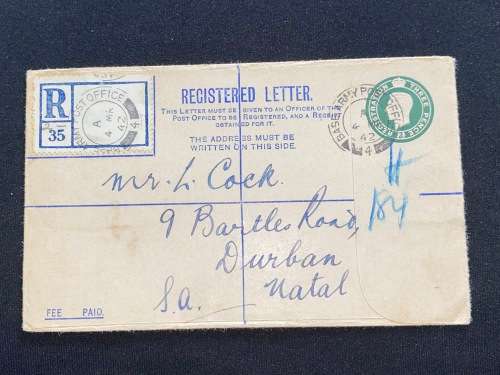 R
35
ARMY POST OFFICE
A
4 MR
42
4
REGISTERED LETTER.
THIS LETTER MUST BE GIVEN TO AN OFFICER OF THE
POST OFFICE TO BE REGISTERED, AND A RECEIPT
OBTAINED FOR IT.
THE ADDRESS MUST BE
WRITTEN ON THIS SIDE.
BASE ARMY POST OFFICE
42
4
REGISTRATION THREE PENCE
Mr. L. Cock.
9 Bartles Road,
Durban
S.A. Natal
184
FEE PAID.